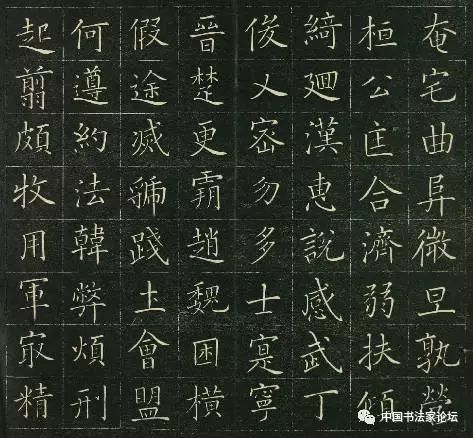 奄宅曲阜微旦孰營
桓公匡合濟弱扶傾
綺廻漢惠說感武丁
俊乂密勿多士寔寧
晉楚更霸趙魏困橫
假途滅虢踐土會盟
何遵約法韓弊煩刑
起翦頗牧用軍㝡精
中国书法家论坛